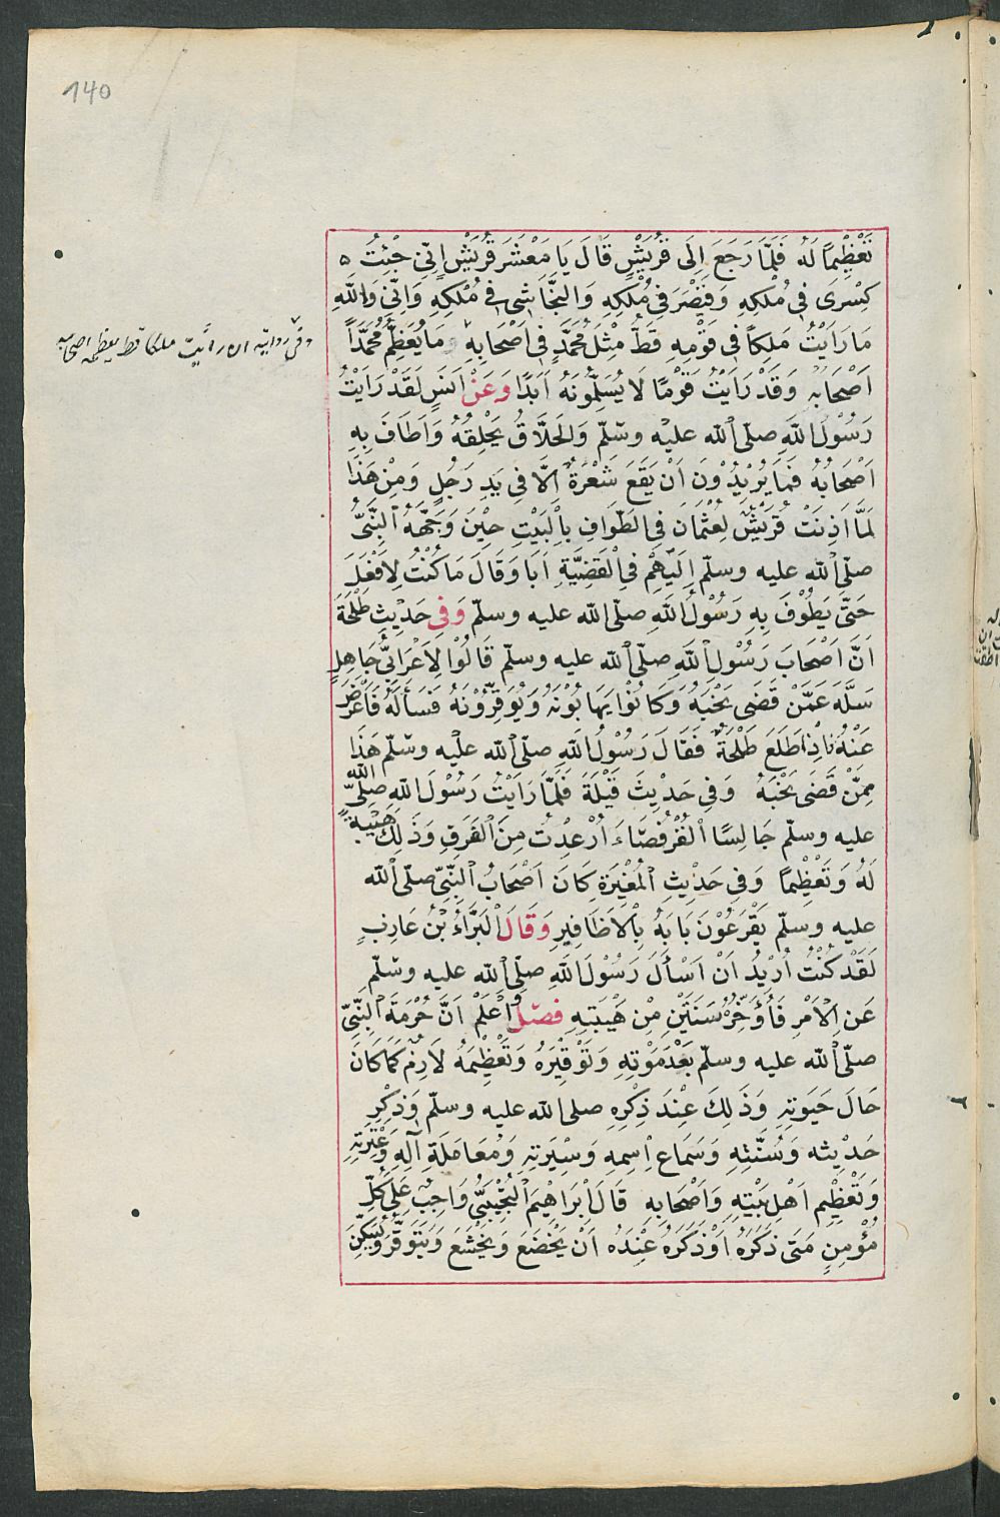 140
تَعْظِيْمًا لَهُ فَلَمَّا رَجَعَ اِلَى قُرَيْشٍ قَالَ يَا مَعْشَرَ قُرَيْشٍ اِنِّى جِئْتُ
كِسْرَى فِى مُلْكِهِ وَقَيْصَرَ فِى مُلْكِهِ وَالنَّجَاشِى فِى مُلْكِهِ وَاِنِّى وَاللهِ
مَا رَاَيْتُ مَلِكاً فِى قَوْمِهِ قَطُّ مِثْلَ مُحَمَّدٍ فِى اَصْحَابِهِ وَمَا يُعَظِّمُ مُحَمَّدًا
وفى رواية ان رأيت ملكا قط يعظمه اصحابه
اَصْحَابُهُ وَقَدْ رَاَيْتُ قَوْمًا لَا يُسَلِّمُونَهُ اَبَدًا وَعَنْ اَنَسٍ لَقَدْ رَاَيْتُ
رَسُوْلَ اللهِ صلّى الله عليه وسلّم وَالْحَلَّاقُ يَحْلِقُهُ وَاَطَافَ بِهِ
اَصْحَابُهُ فَمَا يُرِيْدُوْنَ اَنْ يَقَعَ شَعْرَةٌ اِلَّا فِى يَدِ رَجُلٍ وَمِنْ هَذَا
لَمَّا اَذِنَتْ قُرَيْشٌ لِعُثْمَانَ فِى الطَّوَافِ بِالْبَيْتِ حِيْنَ وَجَّهَهُ النَّبِىُّ
صلّى الله عليه وسلّم اِلَيْهِمْ فِى الْقَضِيَّةِ اَبَا وَقَالَ مَا كُنْتُ لِاَفْعَلَ
حَتَّى يَطُوْفَ بِهِ رَسُوْلُ اللهِ صلّى الله عليه وسلّم وَفِى حَدِيْثِ طَلْحَةَ
اَنَّ اَصْحَابَ رَسُوْلِ اللهِ صلّى الله عليه وسلّم قَالُوْا لِاَعْرَابِىٍّ جَاهِلٍ
سَلْهُ عَمَّنْ قَضَى نَحْبَهُ وَكَانُوْا يَهَابُوْنَهُ وَيُوَقِّرُوْنَهُ فَسَأَلَهُ فَاَعْرَضَ
عَنْهُ اِذْ طَلَعَ طَلْحَةُ فَقَالَ رَسُوْلُ اللهِ صلّى الله عليه وسلّم هَذَا
مِمَّنْ قَضَى نَحْبَهُ وَفِى حَدِيْثَ قَيْلَةَ فَلَمَّا رَاَيْتُ رَسُوْلَ اللهِ صلّى الله
عليه وسلّم جَالِسًا الْقُرْفُصَاءَ اُرْعِدْتُ مِنَ الْفَرَقِ وَذَلِكَ هَيْبَةً
لَهُ وَتَعْظِيْمًا وَفِى حَدِيْثِ الْمُغِيْرَةِ كَانَ اَصْحَابُ النَّبِىِّ صلّى الله
عليه وسلّم يَقْرَعُوْنَ بَابَهُ بِالْاَظَافِيرِ وَقَالَ الْبَرَّاءُ بْنُ عَازِبٍ
لَقَدْ كُنْتُ اُرِيْدُ اَنْ اَسْأَلَ رَسُوْلَ اللهِ صلّى الله عليه وسلّم
عَنِ الْاَمْرِ فَاُؤَخِّرُ سَنَتَيْنِ مِنْ هَيْبَتِهِ فصل وَاعْلَمْ اَنَّ حُرْمَةَ النَّبِىِّ
صلّى الله عليه وسلّم بَعْدَ مَوْتِهِ وَتَوْقِيْرَهُ وَتَعْظِيْمَهُ لَازِمٌ كَمَا كَانَ
حَالَ حَيٰوتِهِ وَذَلِكَ عِنْدَ ذِكْرِهِ صلى الله عليه وسلّم وَذِكْرِ
حَدِيْثِه وَسُنَّتِهِ وَسَمَاعِ اِسْمِهِ وَسِيْرَتِهِ وَمُعَامَلَةِ آلِهِ وَعِتْرَتِهِ
وَتَعْظِيْمِ اَهْلِ بَيْتِهِ وَاَصْحَابِهِ قَالَ اِبْرَاهِيْمُ التُّجِيْبِىُّ وَاجِبٌ عَلَى كُلِّ
مُؤْمِنٍ مَتَى ذَكَرَهُ اَوْ ذُكِرَهُ عِنْدَهُ اَنْ يَخْضَعَ وَيَخْشَعَ وَيَتَوَقَّرَ وَيُسَكِّنَ